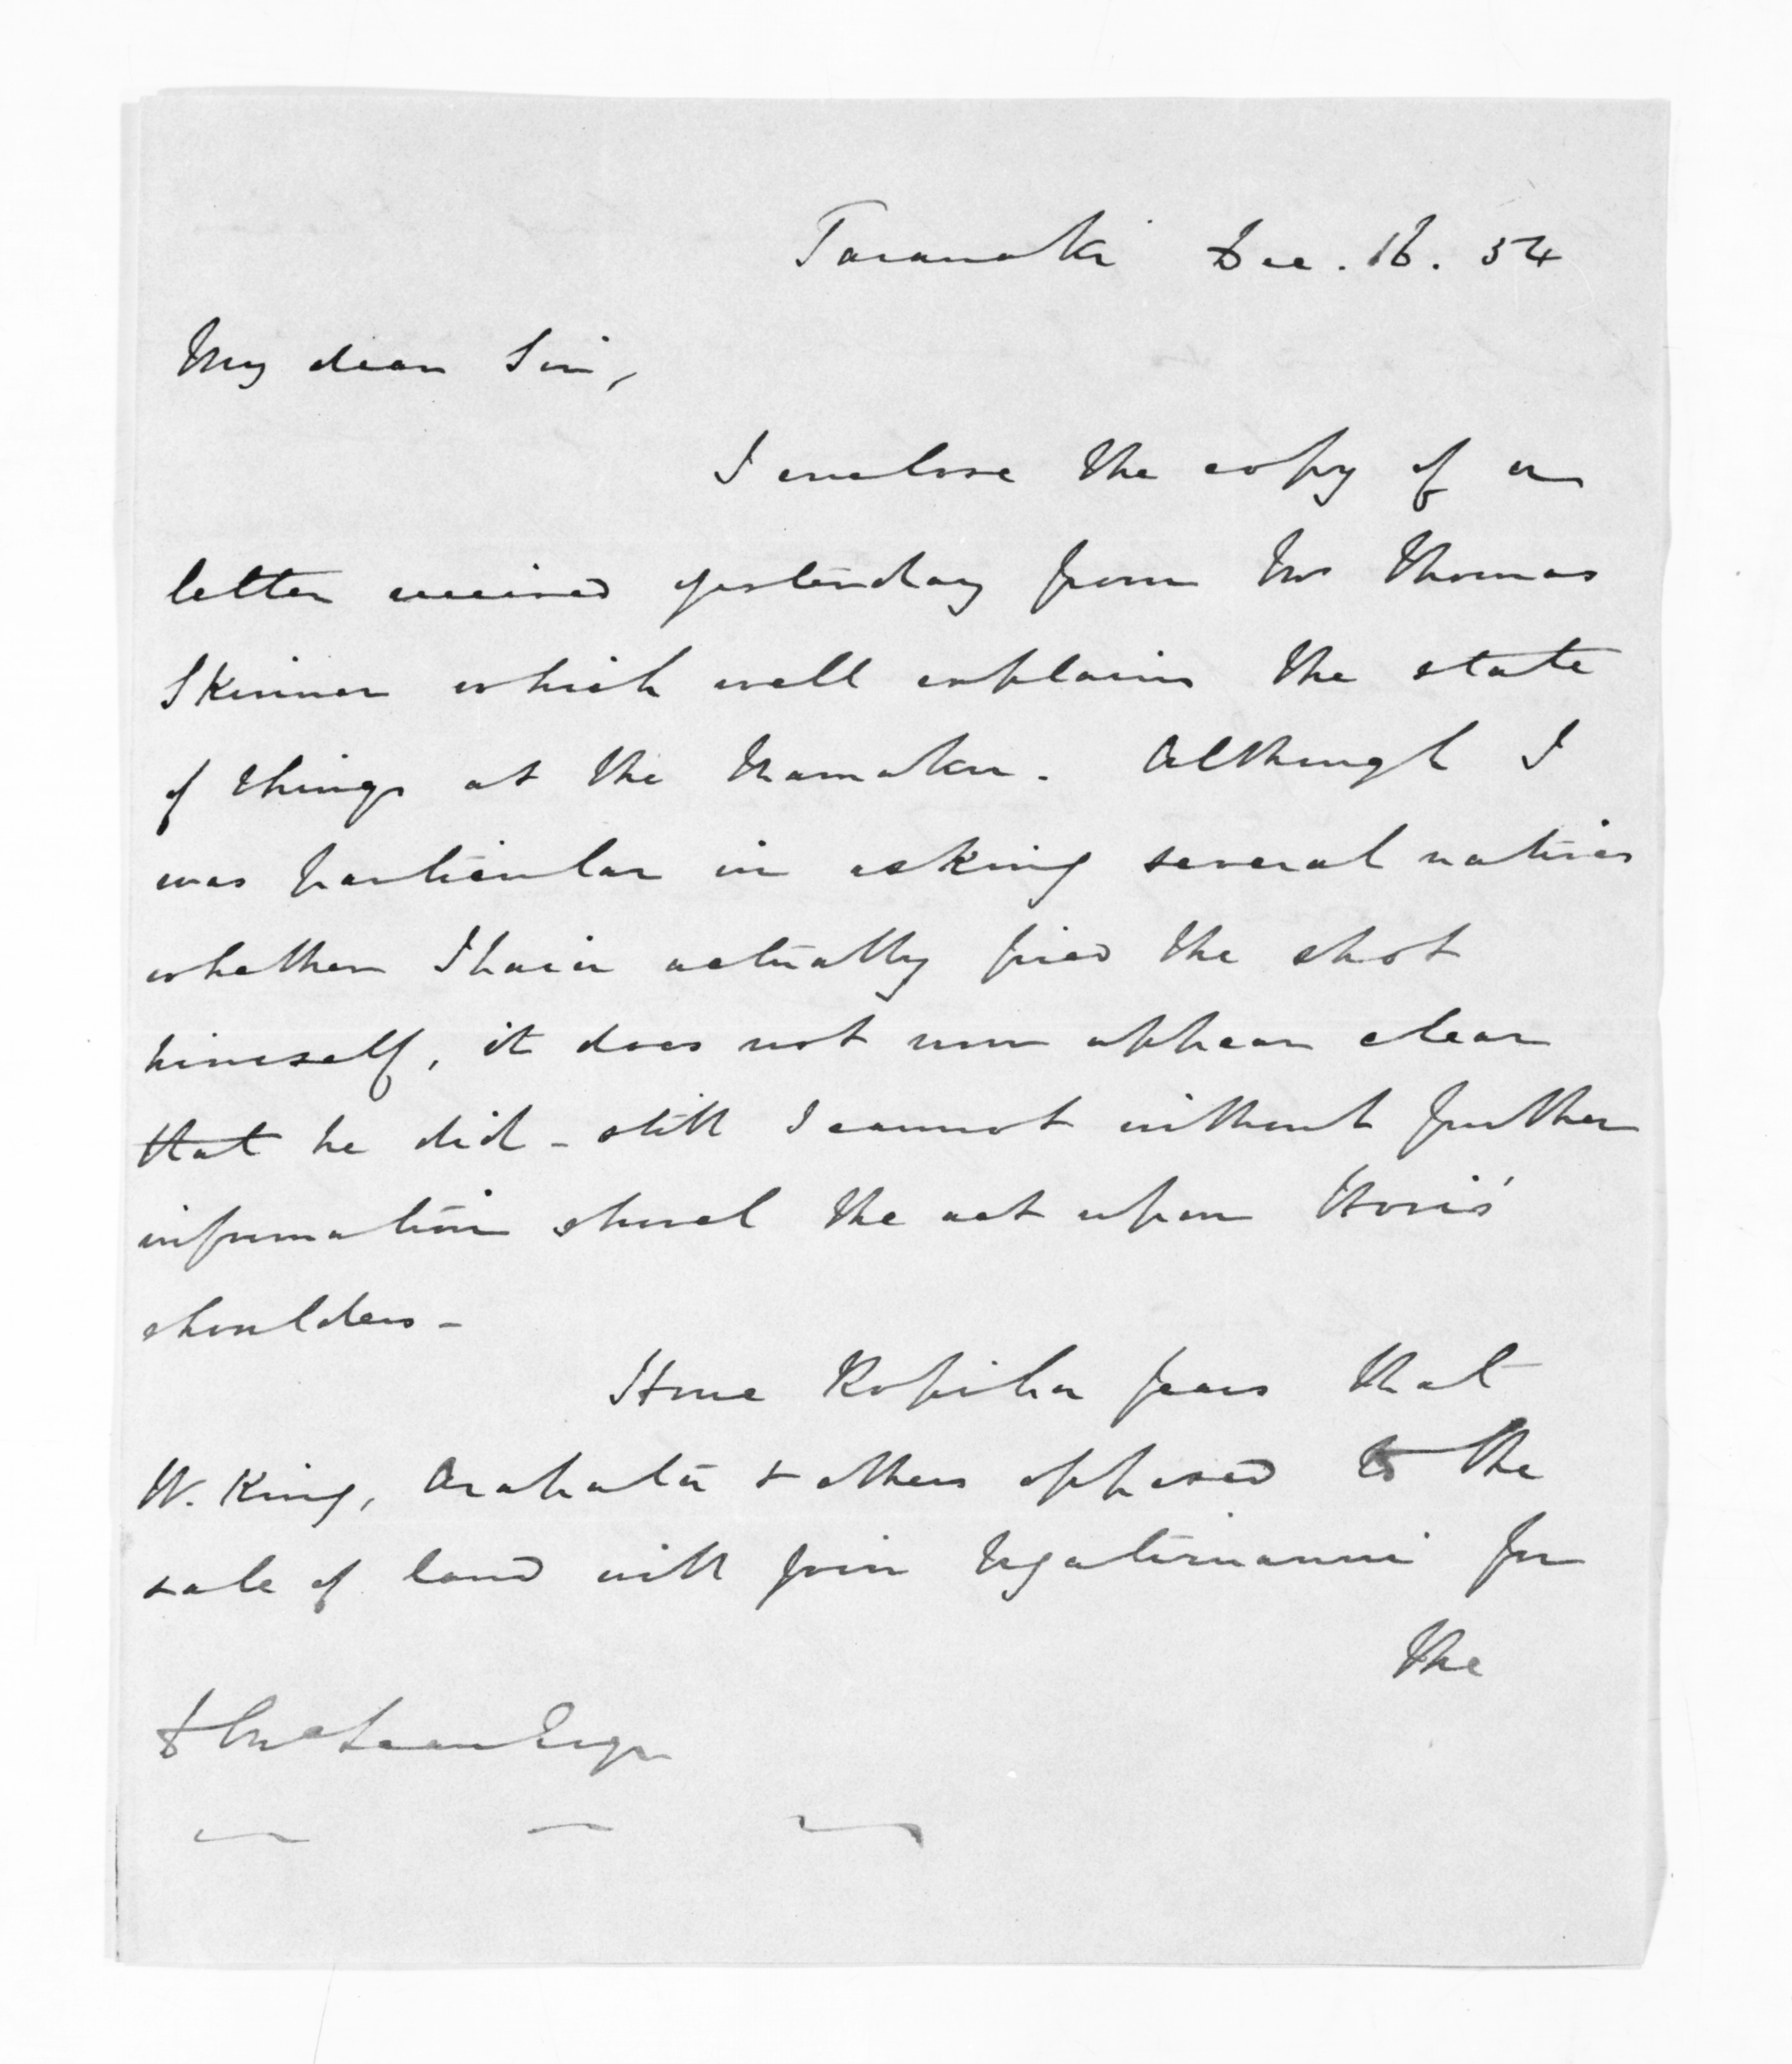 Taranaki Dec. 16. 54
My dear Sir,
I enclose the copy of a
letter received yesterday from Mr Thomas
Skinner which well explains the state
of things at the Mamaku. Although I
was particular in asking several natives
whether Ihaia actually fired the shot
himself, it does not now appear clear
that he did - still I cannot without further
information shovel the act upon Hori's
shoulders -
Hone Ropiha fears that
W. King, Arahata & others opposed to the
sale of land will join Ngatiruanui for
the
D McLean Esqr